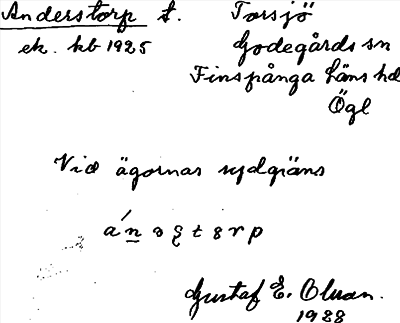 Anderstorp t. Torsjö
ek. kb 1925 Godegårds sn
Finspånga läns hd
Ögl
Vid ägornas sydgräns
Gustaf E. Olsson.
1928